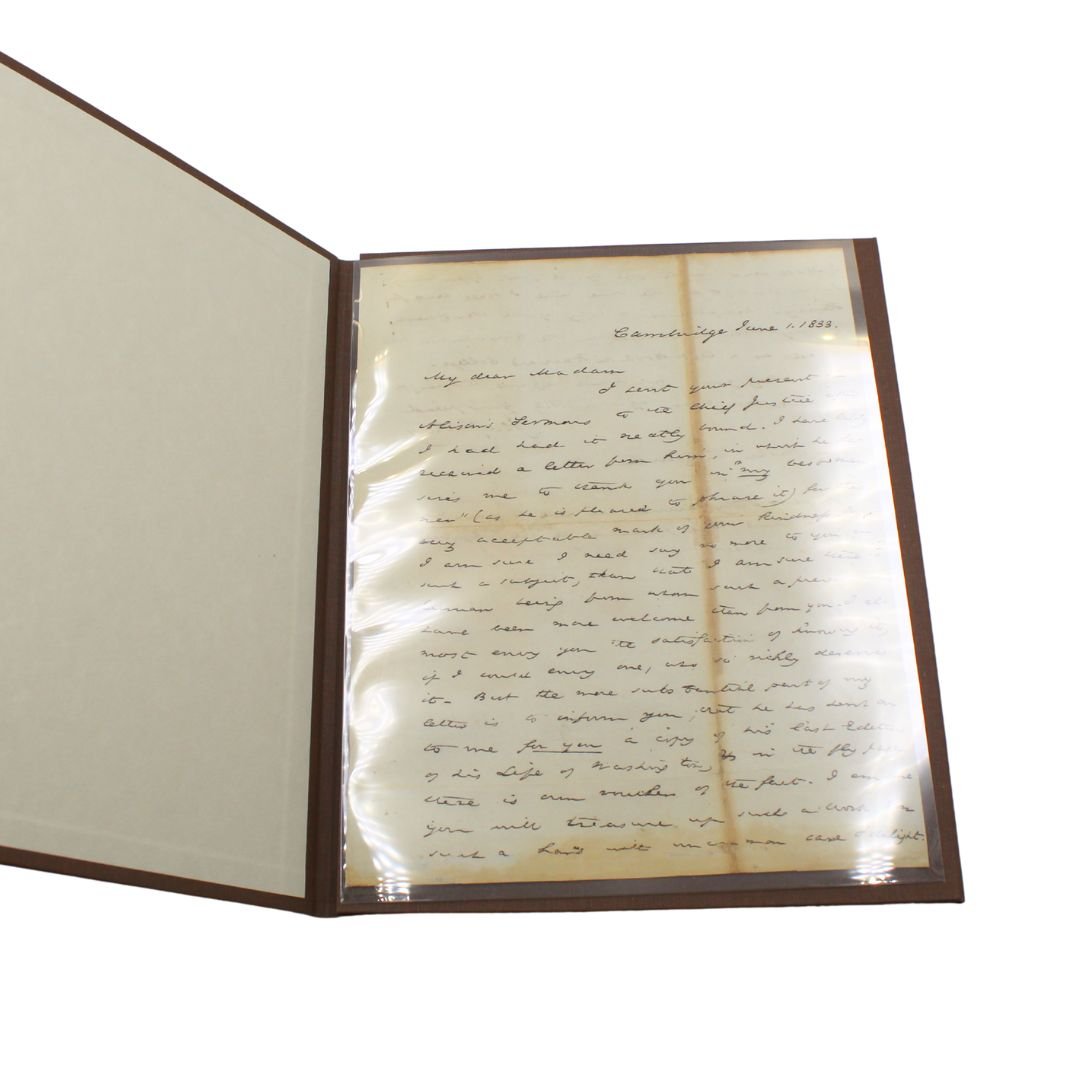 Cambridge June 1. 1833.
My dear Madam
I sent your present
Alison's Sermons to the Chief Justice
I had had it neatly bound. I have
received a letter from him, in which he
me to thank you in "my
(as he is pleased to phrase it) for
very acceptable mark of your kindness
I am sure I need say no more to you
such a subject, than that I am sure
human being from whom such a
have been more welcome than from you. I
most envy you the satisfaction of knowing
if I could envy one, who so richly deserves
it. But the more substantial part of my
letter is to inform you, that he has sent
to me for you a copy of his last Edition
of his Life of Washington, & in the fly
there is own voucher of the fact. I am
you will treasure up such a work
such a hand with uncommon care & delight.